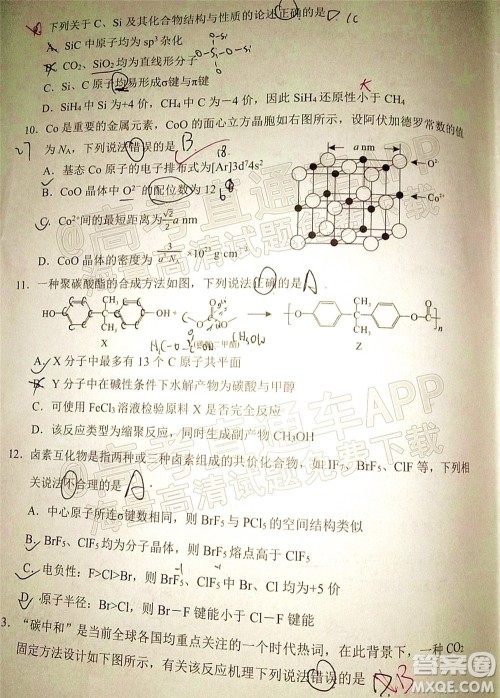 下列关于 C、Si 及其化合物结构与性质的论述正确的是 D
A. SiC 中原子均为 sp³ 杂化
B. CO₂、SiO₂ 均为直线形分子
C. Si、C 原子均易形成σ键与π键
D. SiH₄ 中 Si 为+4 价，CH₄ 中 C 为−4 价，因此 SiH₄ 还原性小于 CH₄
10. Co 是重要的金属元素，CoO 的面心立方晶胞如右图所示，设阿伏加德罗常数的值
为 Nᴀ，下列说法错误的是 B
A．基态 Co 原子的电子排布式为[Ar]3d⁷4s²
B．CoO 晶体中 O²⁻ 的配位数为 12
C．Co²⁺间的最短距离为 √2/2 a nm
D．CoO 晶体的密度为 3/(a³Nᴀ) ×10²³ g·cm⁻³
a nm
O²⁻
Co²⁺
11. 一种聚碳酸酯的合成方法如图，下列说法正确的是 A
HO
CH₃
CH₃
OH
X
CH₃
CH₃
Z
A．X 分子中最多有 13 个 C 原子共平面
B．Y 分子中在碱性条件下水解产物为碳酸与甲醇
C．可使用 FeCl₃ 溶液检验原料 X 是否完全反应
D．该反应类型为缩聚反应，同时生成副产物 CH₃OH
12. 卤素互化物是指两种或三种卤素组成的共价化合物，如 IF₇、BrF₅、ClF 等，下列相
关说法不合理的是 A
A．中心原子所连σ键数相同，则 BrF₅ 与 PCl₅ 的空间结构类似
B．BrF₅、ClF₅ 均为分子晶体，则 BrF₅ 熔点高于 ClF₅
C．电负性：F>Cl>Br，则 BrF₅、ClF₅ 中心原子均为+5 价
D．原子半径：Br>Cl，则 Br－F 键能小于 Cl－F 键能
3. “碳中和”是当前全球各国均重点关注的一个时代热词，在此背景下，一种 CO₂
固定方法设计如下图所示，有关该反应机理下列说法错误的是 B
@高考直通车APP
海量高清试题免费下载
@高考直通车APP
海量高清试题免费下载
答案圈
MXQE.COM